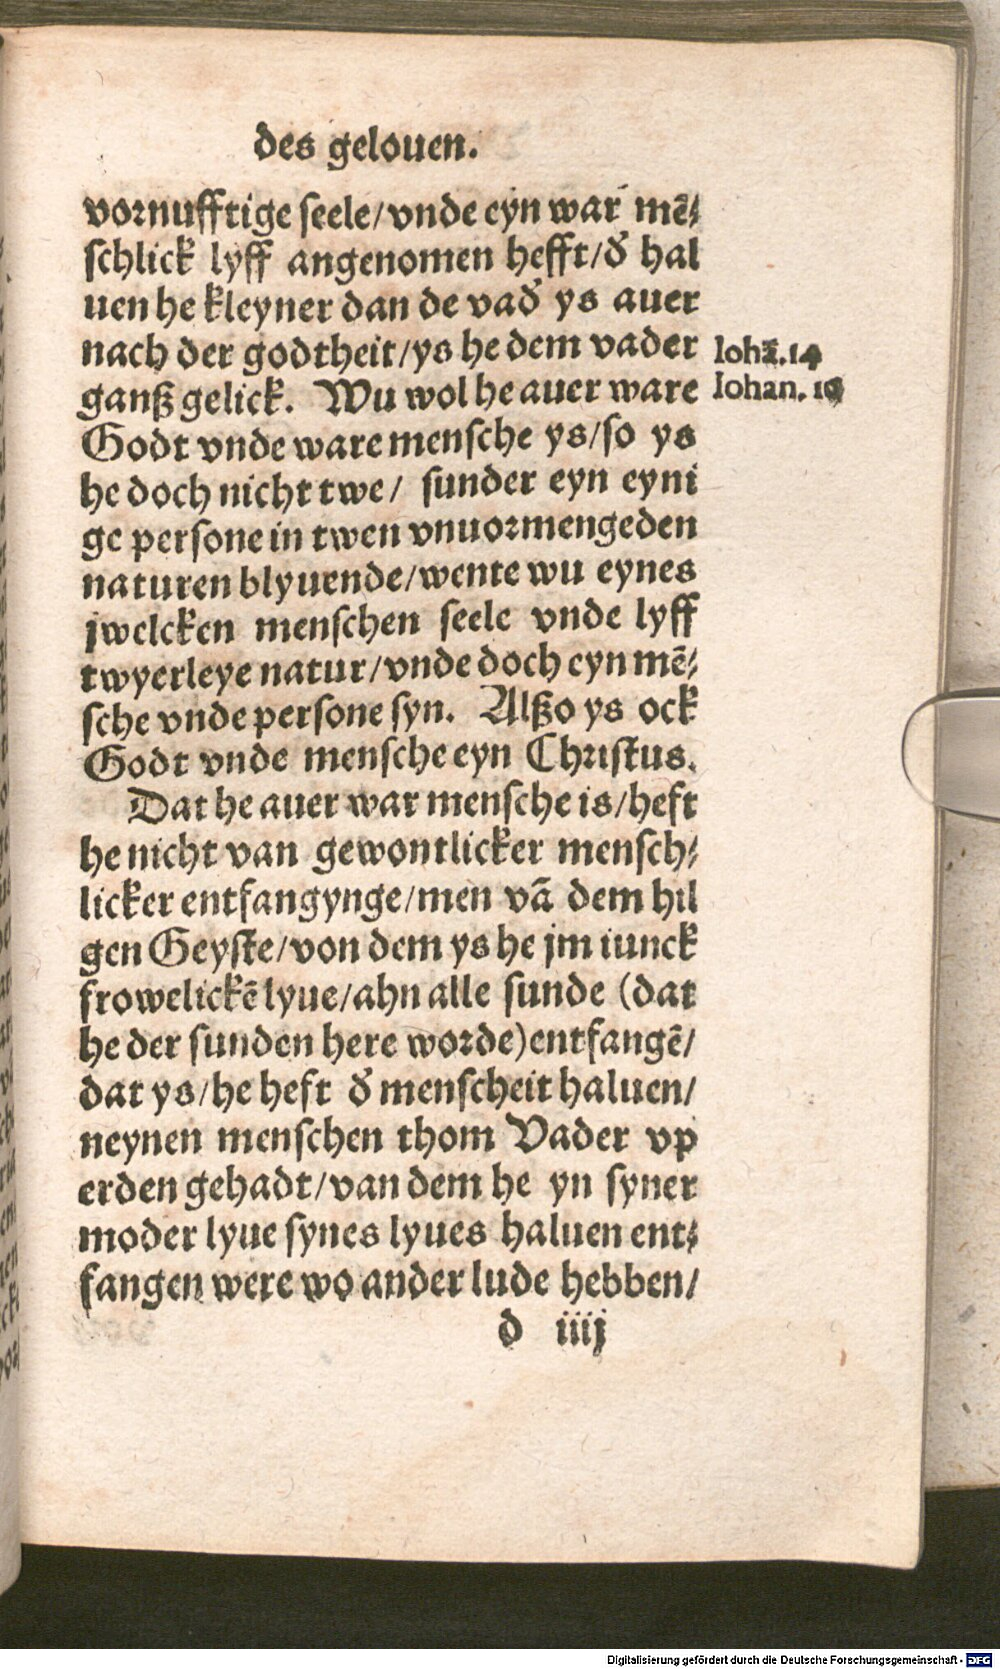 des gelouen.
vornufftige seele/vnde eyn war mē⸗
schlick lyff angenomen hefft/đ hal
uen he kleyner dan de vađ ys auer
nach der godtheit/ys he dem vader
ganß gelick. Wu wol he auer ware
Godt vnde ware mensche ys/so ys
he doch nicht twe/ sunder eyn eyni
ge persone in twen vnuormengeden
naturen blyuende/wente wu eynes
jwelcken menschen seele vnde lyff
twyerleye natur/vnde doch eyn mē⸗
sche vnde persone syn. Alßo ys ock
Godt vnde mensche eyn Christus.
Dat he auer war mensche is/heft
he nicht van gewontlicker mensch⸗
licker entfangynge/men vā dem hil
gen Geyste/von dem ys he jm iunck
frowelickē lyue/ahn alle sunde (dat
he der sunden here worde)entfangē/
dat ys/he heft đ menscheit haluen/
neynen menschen thom Vader vp
erden gehadt/van dem he yn syner
moder lyue synes lyues haluen ent⸗
fangen were wo ander lude hebben/
d iiij
Iohā.14
Iohan.
Digitalisierung gefördert durch die Deutsche Forschungsgemeinschaft - DFG